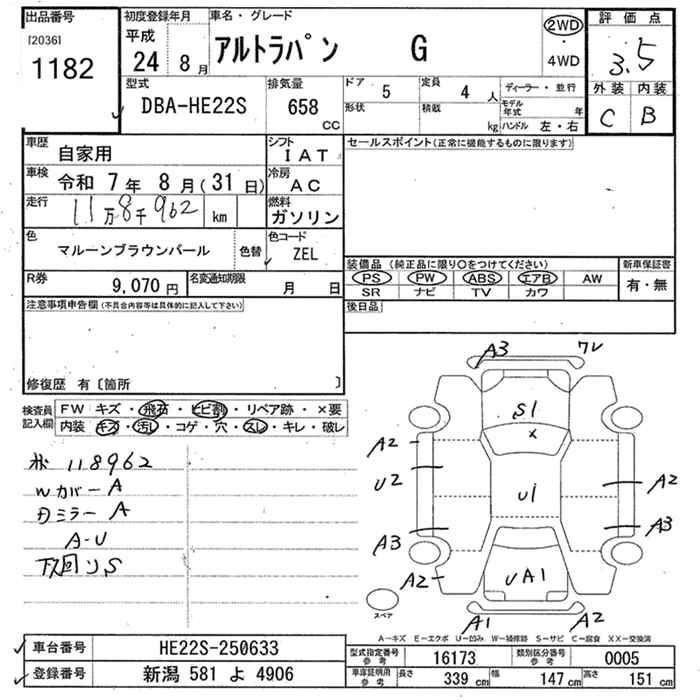 出品番号
[2036]
1182
初度登録年月
平成
24 8月
車名・グレード
アルトラパン G
2WD
・
4WD
評価点
3.5
外装 内装
C B
型式
DBA-HE22S
排気量
658
CC
ドア 5
定員 4 人
形状
積載 kg
ディーラー・並行
モデル年式 年
ハンドル 左・右
車歴
自家用
シフト
IAT
車検
令和 7年 8月(31日)
冷房
AC
走行
11万8千962 km
燃料
ガソリン
色
マルーンブラウンパール
色替
色コード
ZEL
R券
9,070 円
名変通知期限
月 日
セールスポイント(正常に機能するものに限ります)
装備品 (純正品に限り○をつけてください)
PS PW ABS エアB AW
SR ナビ TV カワ
新車保証書
有・無
後日品
注意事項申告欄(不具合内容等は具体的に記入して下さい)
修復歴 有〔箇所 〕
検査員
記入欄
FW キズ・飛石・ヒビ割・リペア跡・×要
内装 キズ・汚レ・コゲ・穴・スレ・キレ・破レ
118962
Wカバー A
Dミラー A
A-U
下回りS
A3
ワレ
S1
×
A2
U2
U1
A2
A3
A3
A2
UA1
A1
A2
スペア
A―キズ E―エクボ U―凹み W―補修跡 S―サビ C―腐食 XX―交換済
車台番号
HE22S-250633
登録番号
新潟 581 よ 4906
型式指定番号
参考
16173
類別区分番号
参考
0005
車庫証明用
参考
長さ 339 cm
幅 147 cm
高さ 151 cm